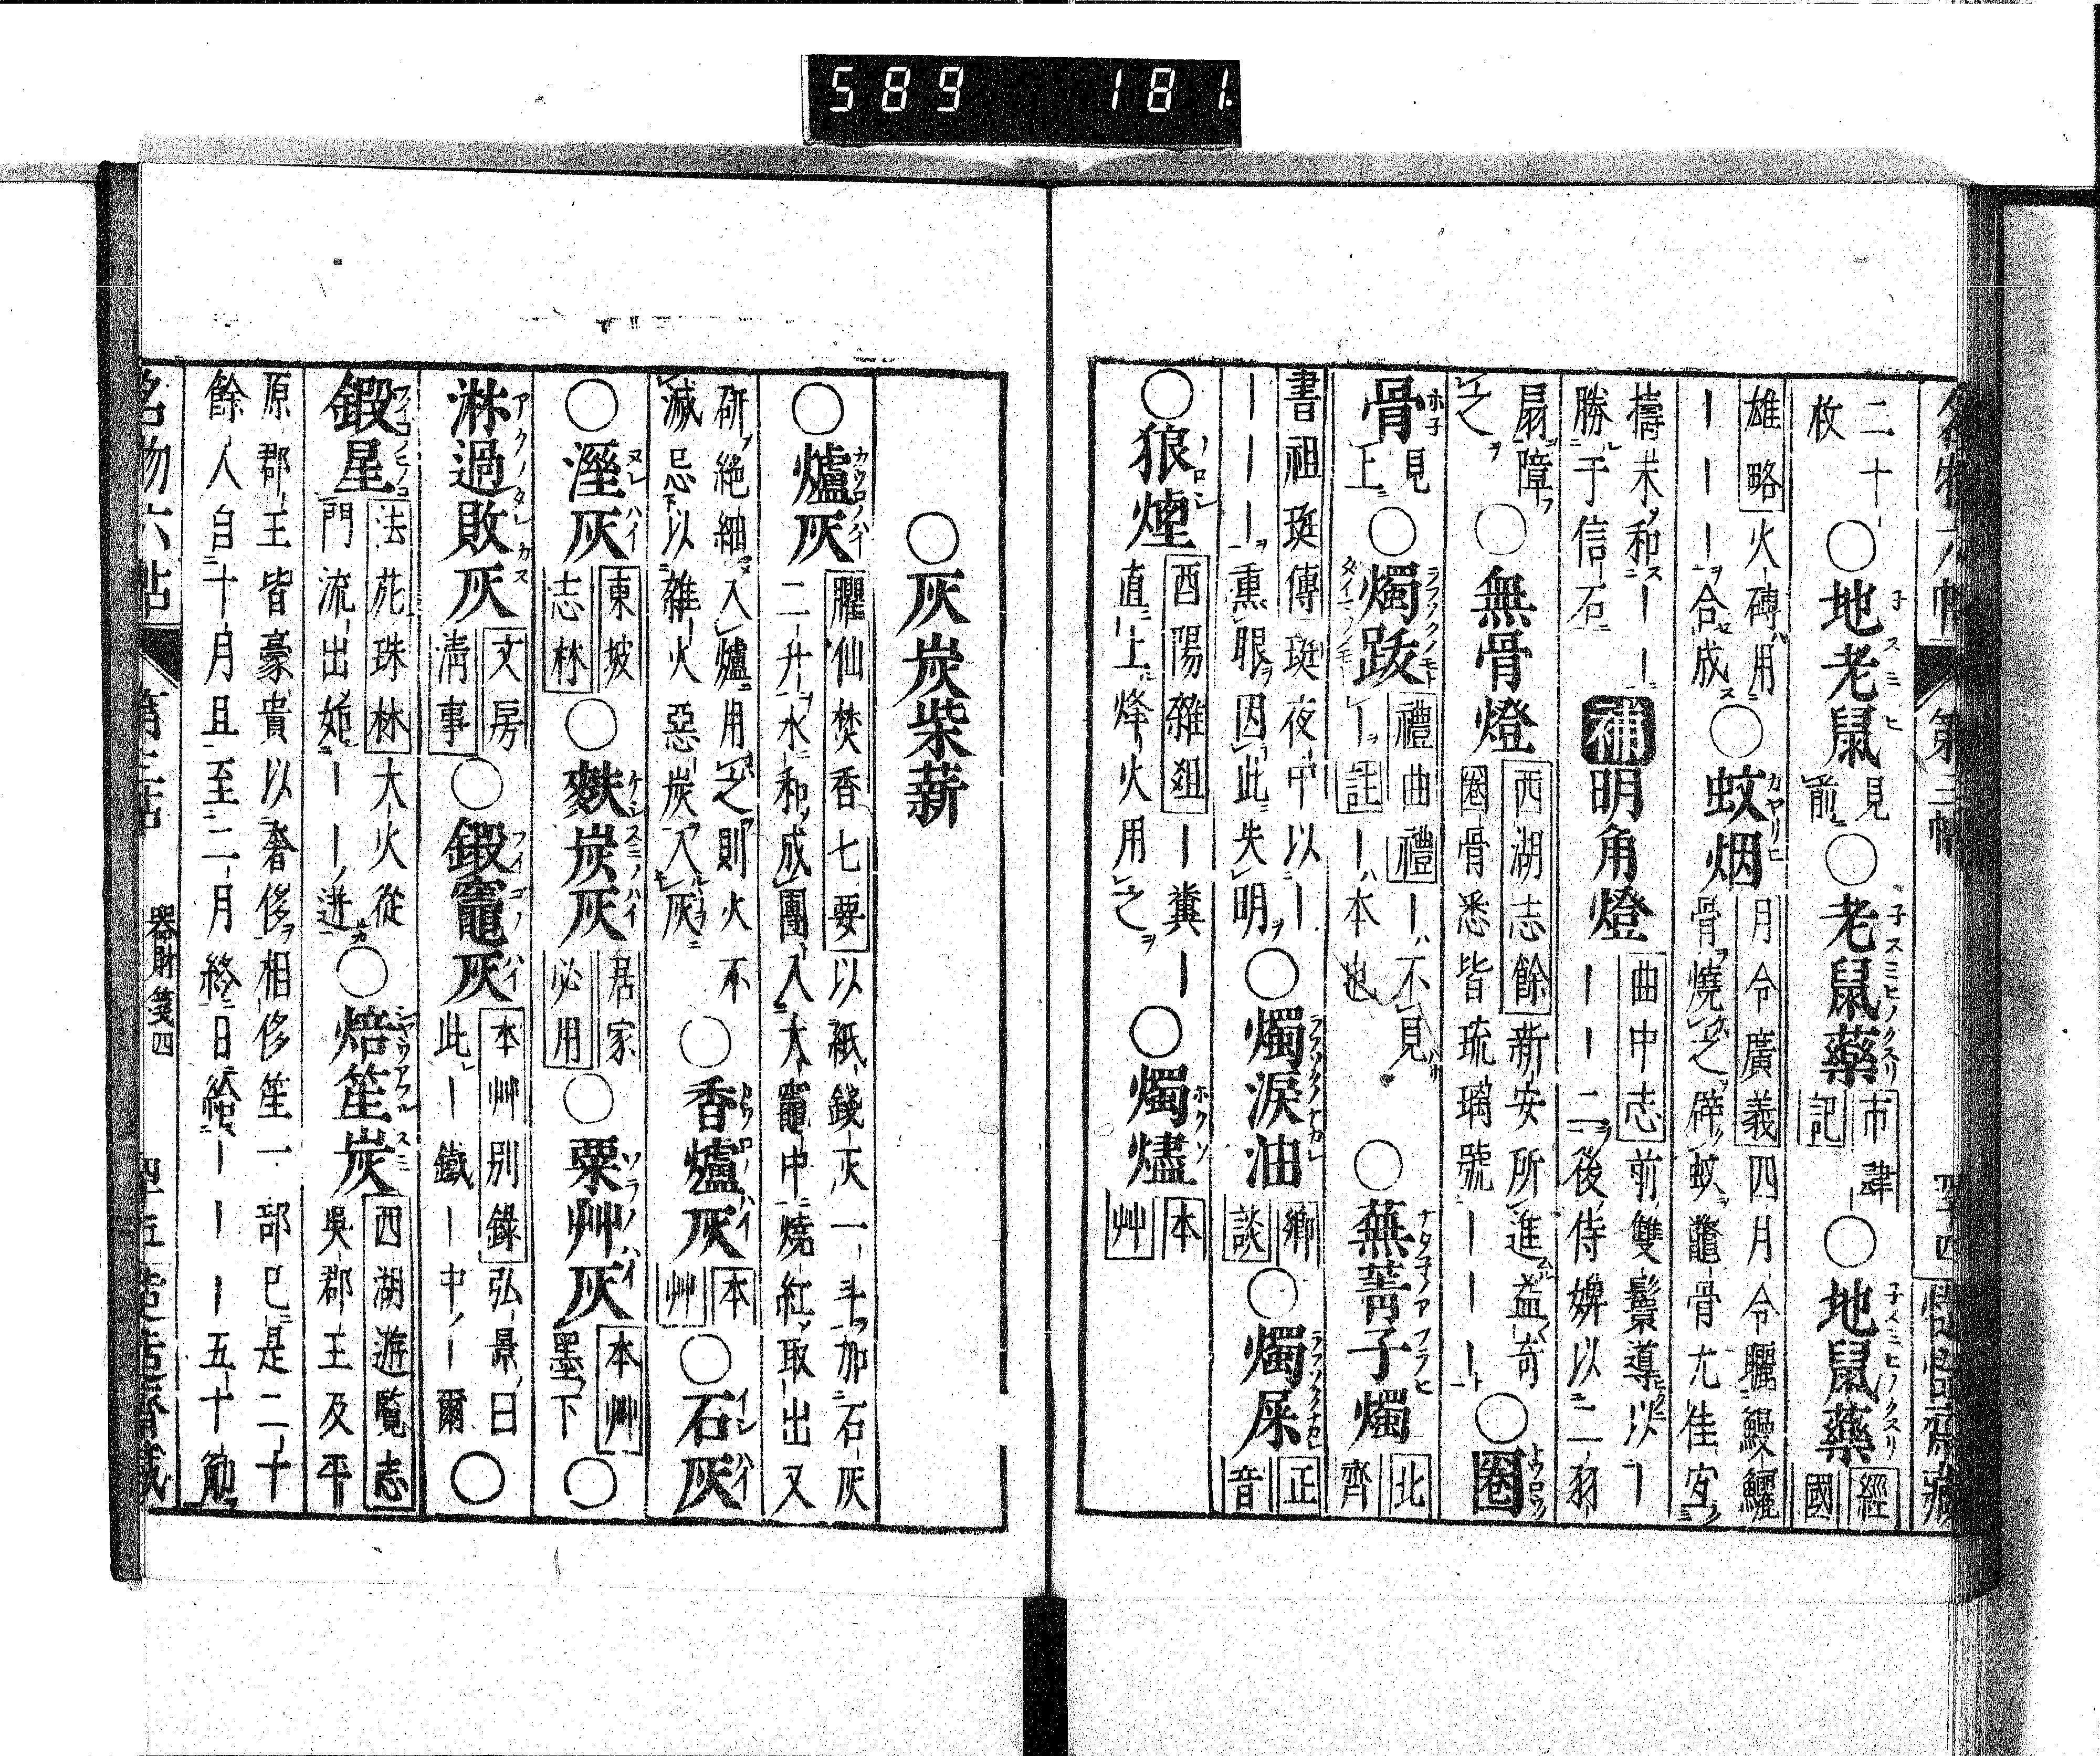 589 181.
名物六帖 第三帖 四十四
二十枚○地老鼠見前○老鼠藥市肆記○地鼠藥經國
雄略火磚用ーーーー合成○蚊烟月令廣義四月令曬鰻鱺骨燒之辟蚊鼈骨尤佳宜
擣末和ーー勝于信石 補明角燈曲中志前雙鬟導以ーーー二後侍婢以二羽
扇障之○無骨燈西湖志餘新安所進益奇○圈骨悉皆琉璃號ーーーー
骨見上○燭跋禮曲禮ー不見ー註ー本也○蕪菁子燭北齊
書祖珽傳珽夜中以ーーーー熏眼因此失明○燭淚油鄉談○燭屎正音
○狼煙酉陽雜俎ー糞ー直上烽火用之○燭燼本艸
○灰炭柴薪
○爐灰臞仙焚香七要以紙錢灰一斗加石灰二升水和成團入大竈中燒紅取出又
研絕細入爐用之則火不滅忌以雜火惡炭入灰○香爐灰本艸○石灰
○溼灰東坡志林○麩炭灰居家必用○粟艸灰本艸墨下○
淋過敗灰文房清事○鍛竈灰本艸別錄弘景曰此ー鐵ー中ー爾○
鍛星法苑珠林大火從門流出ーー迸○焙笙炭西湖遊覽志吳郡王及平
原郡王皆豪貴以奢侈相侈笙一部已是二十餘人自十月旦至二月終日給ーーー五十觔
名物六帖 第三帖 器財箋四 四十五